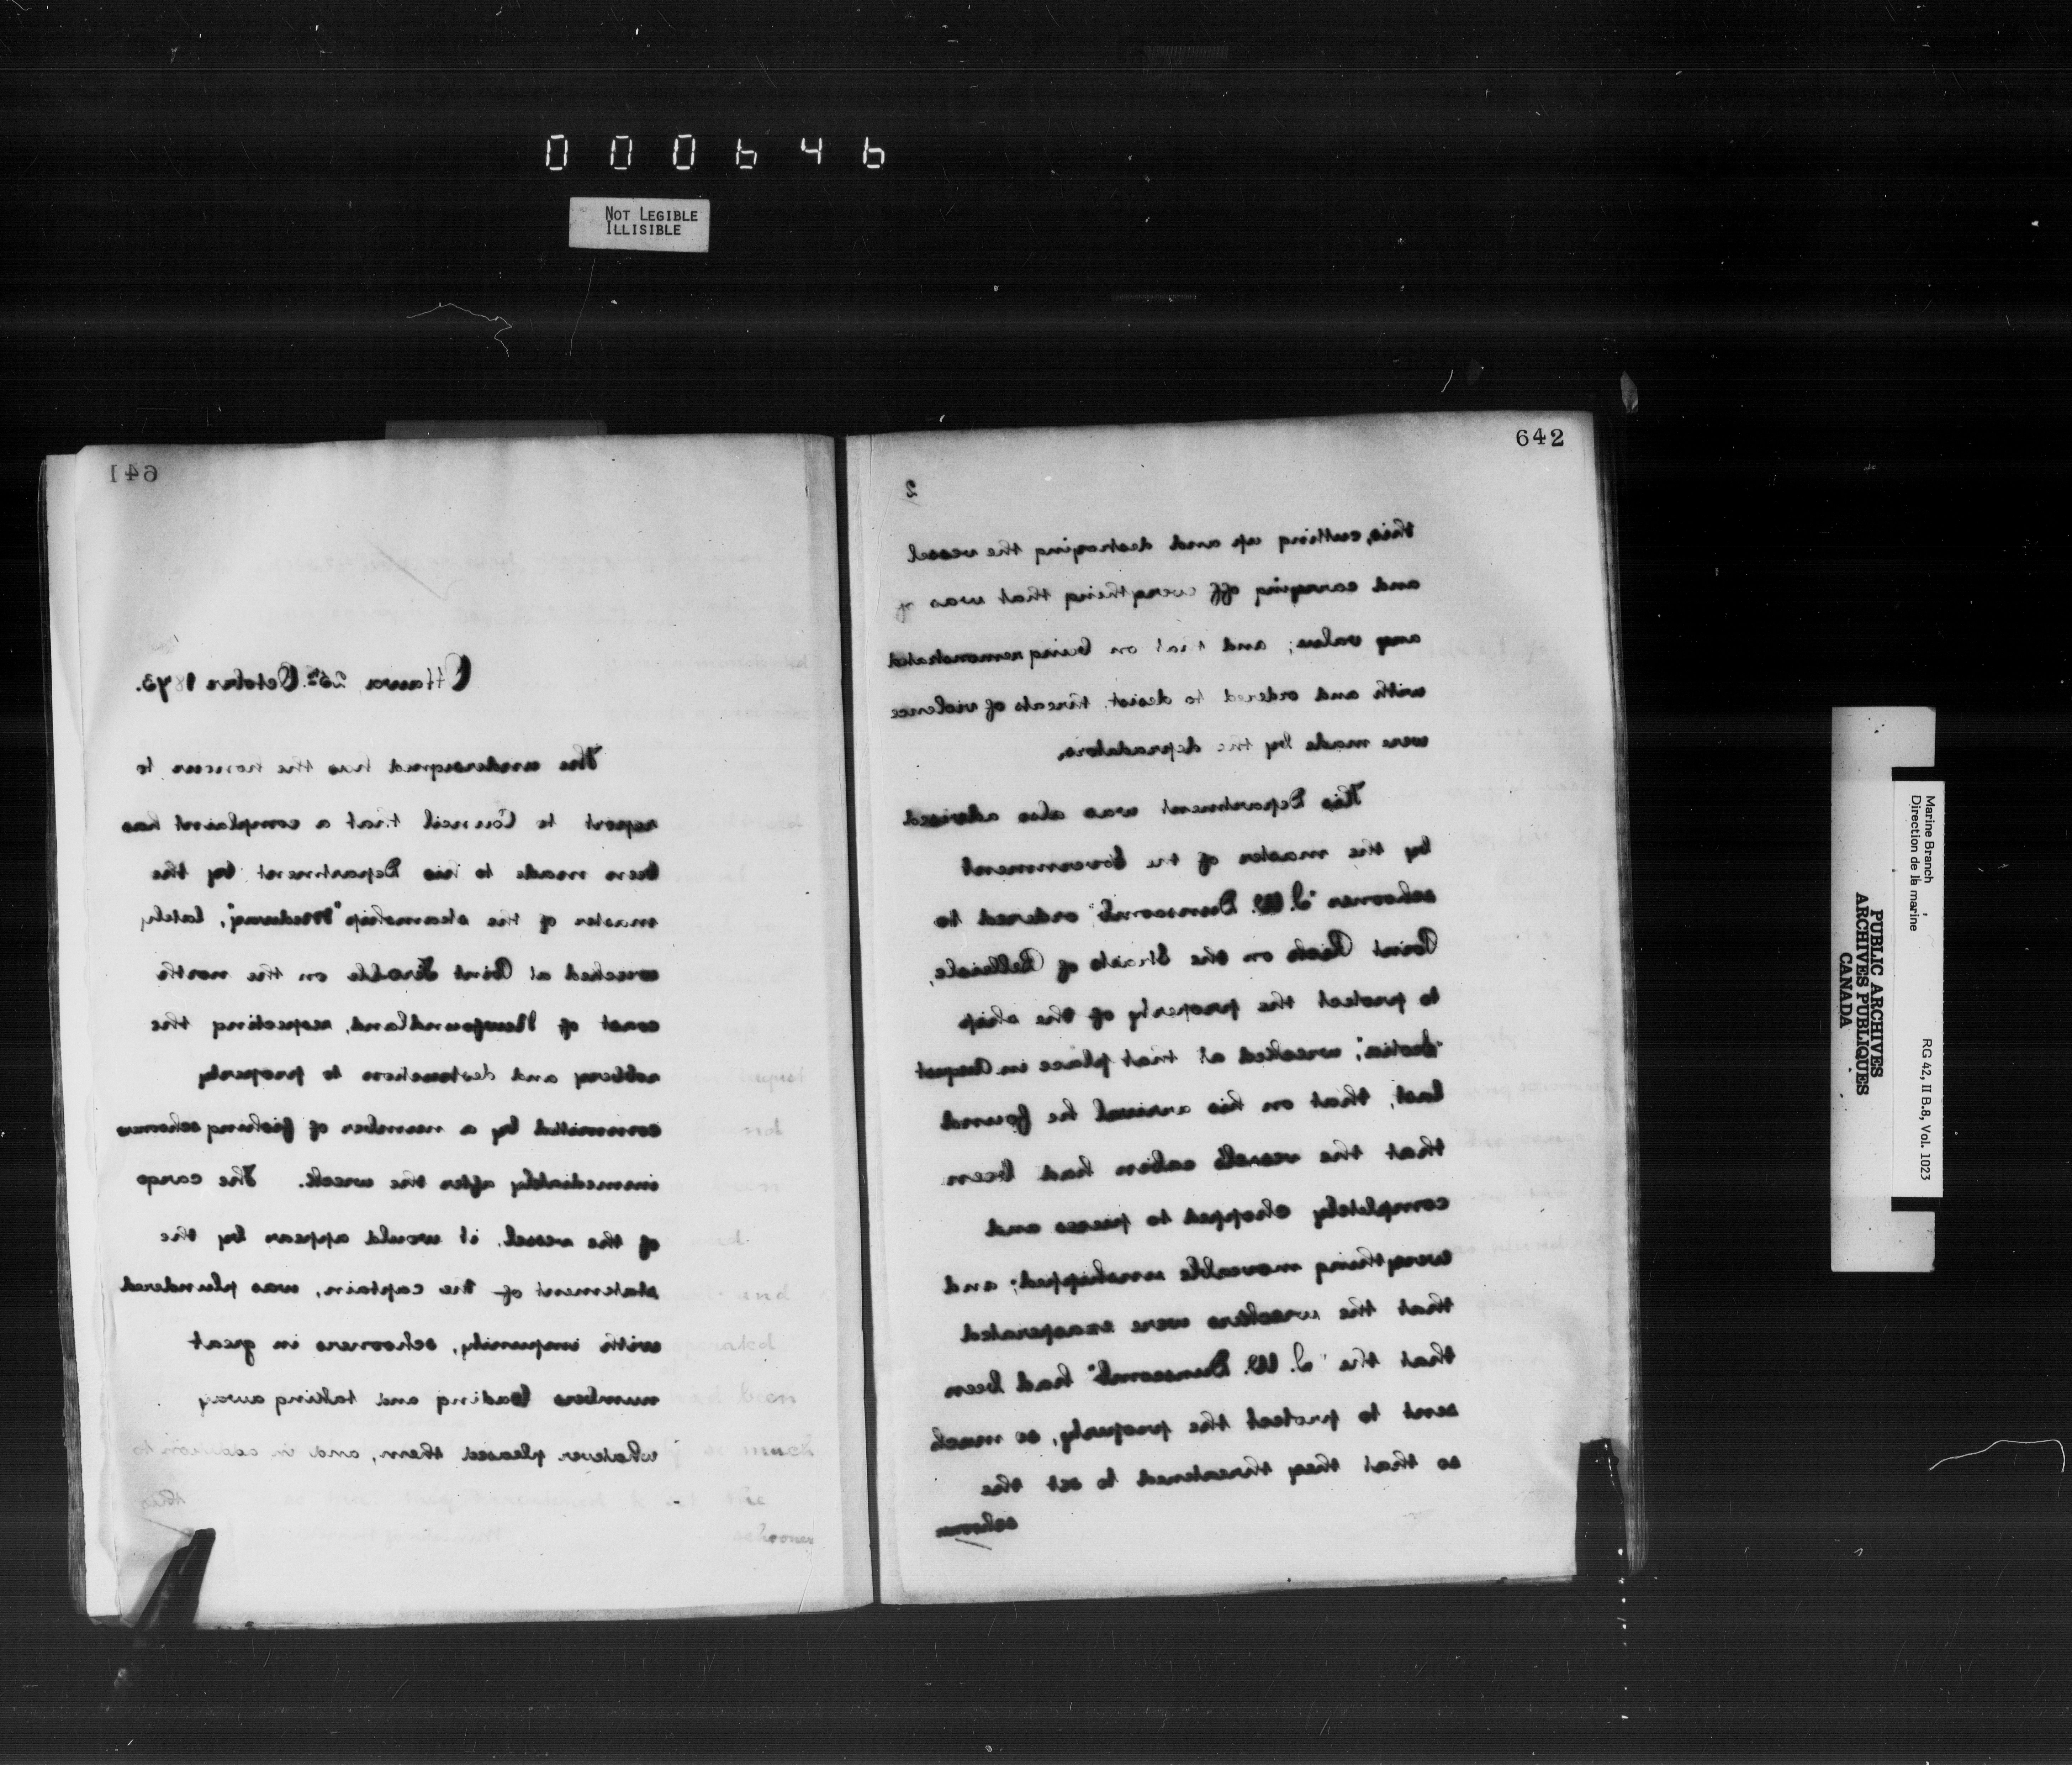 000646
NOT LEGIBLE
ILLISIBLE
641
Ottawa 25th October 1873.
The undersigned has the honour to
report to Council that a complaint has
been made to his Department by the
master of the steamship "Medway", lately
wrecked at Point Ferolle on the north
coast of Newfoundland, respecting the
robbery and destruction to property
committed by a number of fishing schooners
immediately after the wreck. The cargo
of the vessel, it would appear by the
statement of the captain, was plundered
with impunity, schooners in great
numbers loading and taking away
whatever pleased them, and in addition to
this
642
2
this, cutting up and destroying the vessel
and carrying off everything that was of
any value; and that on being remonstrated
with and ordered to desist, threats of violence
were made by the depradators.
This Department was also advised
by the master of the Government
schooner "J. W. Dunscomb" ordered to
Point Rich on the Straits of Belleisle,
to protect the property of the ship
"Scotia", wrecked at that place in August
last, that on his arrival he found
that the vessel's cabin had been
completely chopped to pieces and
everything moveable unshipped; and
that the wreckers were exasperated
that the "J. W. Dunscomb" had been
sent to protect the property, so much
so that they threatened to set the
schooner
Marine Branch
Direction de la marine
RG 42, II B.8, Vol. 1023
PUBLIC ARCHIVES
ARCHIVES PUBLIQUES
CANADA